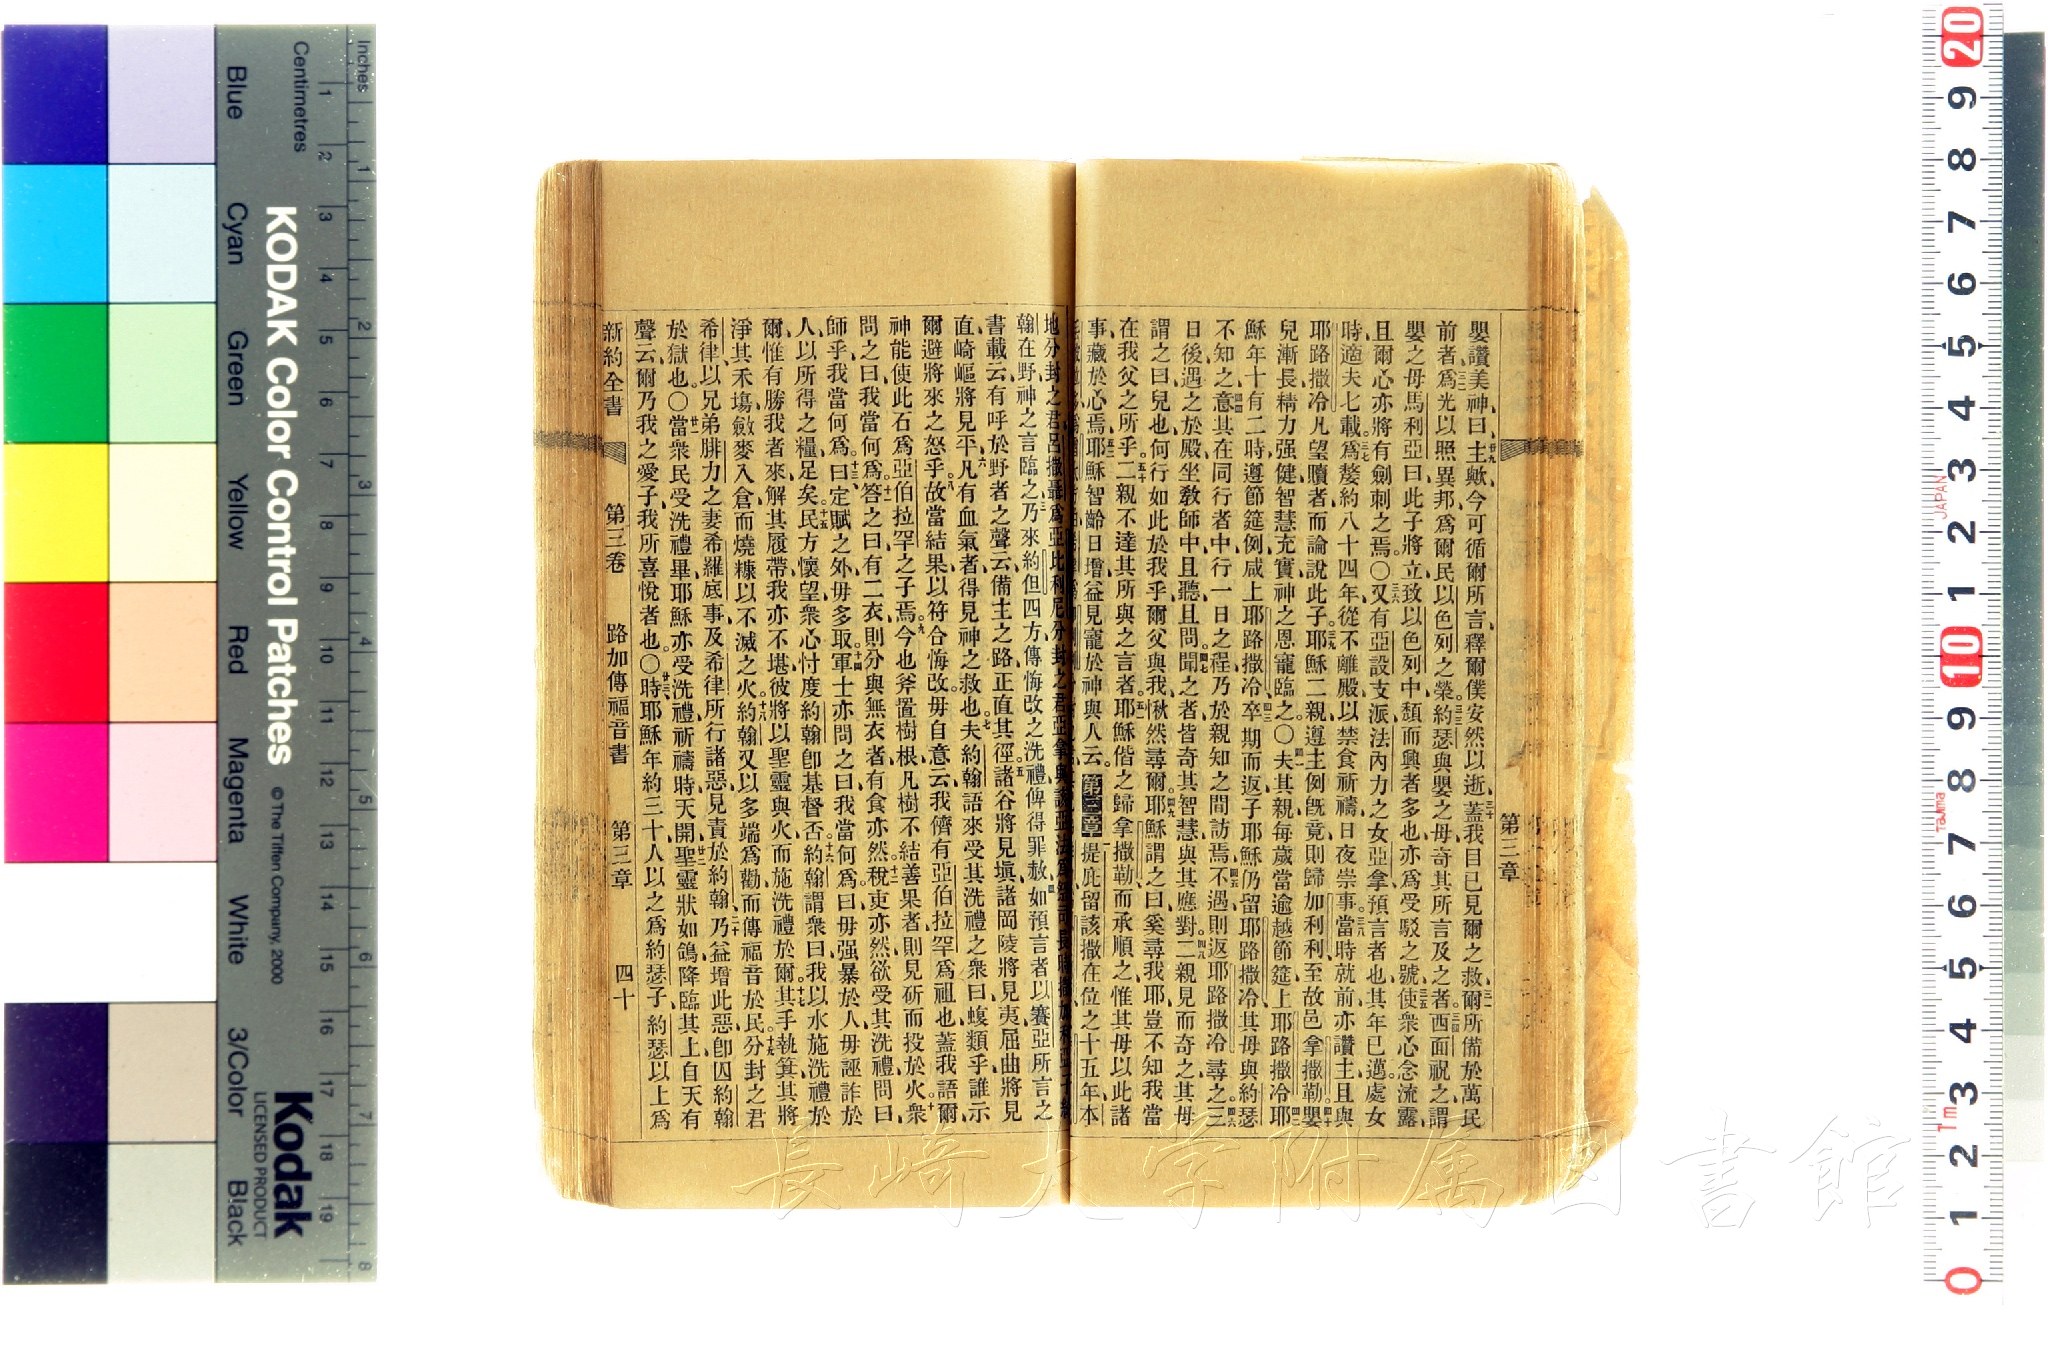 第三章
嬰讚美神曰主歟今可循爾所言釋爾僕安然以逝蓋我目已見爾之救爾所備於萬民
前者爲光以照異邦爲爾民以色列之榮約瑟與嬰之母奇其所言及之者西面祝之謂
嬰之母馬利亞曰此子將立致以色列中頹而興者多也亦爲受駁之號使衆心念流露
且爾心亦將有劍刺之焉〇又有亞設支派法內力之女亞拿預言者也其年已邁處女
時適夫七載爲嫠約八十四年從不離殿以禁食祈禱日夜崇事當時就前亦讚主且與
耶路撒冷凡望贖者而論說此子耶穌二親遵主例旣竟則歸加利利至故邑拿撒勒嬰
兒漸長精力强健智慧充實神之恩寵臨之〇夫其親每歲當逾越節筵上耶路撒冷耶
穌年十有二時遵節筵例咸上耶路撒冷卒期而返子耶穌仍留耶路撒冷其母與約瑟
不知之意其在同行者中行一日之程乃於親知之間訪焉不遇則返耶路撒冷尋之三
日後遇之於殿坐敎師中且聽且問聞之者皆奇其智慧與其應對二親見而奇之其母
謂之曰兒也何行如此於我乎爾父與我愀然尋爾耶穌謂之曰奚尋我耶豈不知我當
在我父之所乎二親不達其所與之言者耶穌偕之歸拿撒勒而承順之惟其母以此諸
事藏於心焉耶穌智齡日增益見寵於神與人云第三章提庇留該撒在位之十五年本
地分封之君呂撒聶爲亞比利尼分封之君亞拿與
翰在野神之言臨之乃來約但四方傳悔改之洗禮俾得罪赦如預言者以賽亞所言之
書載云有呼於野者之聲云備主之路正直其徑諸谷將見塡諸岡陵將見夷屈曲將見
直崎嶇將見平凡有血氣者得見神之救也夫約翰語來受其洗禮之衆曰蝮類乎誰示
爾避將來之怒乎故當結果以符合悔改毋自意云我儕有亞伯拉罕爲祖也蓋我語爾
神能使此石爲亞伯拉罕之子焉今也斧置樹根凡樹不結善果者則見斫而投於火衆
問之曰我當何爲答之曰有二衣則分與無衣者有食亦然稅吏亦然欲受其洗禮問曰
師乎我當何爲曰定賦之外毋多取軍士亦問之曰我當何爲曰毋强暴於人毋誣詐於
人以所得之糧足矣民方懷望衆心忖度約翰卽基督否約翰謂衆曰我以水施洗禮於
爾惟有勝我者來解其履帶我亦不堪彼將以聖靈與火而施洗禮於爾其手執箕其將
淨其禾塲斂麥入倉而燒糠以不滅之火約翰又以多端爲勸而傳福音於民分封之君
希律以兄弟腓力之妻希羅底事及希律所行諸惡見責於約翰乃益增此惡卽囚約翰
於獄也〇當衆民受洗禮畢耶穌亦受洗禮祈禱時天開聖靈狀如鴿降臨其上自天有
聲云爾乃我之愛子我所喜悅者也〇時耶穌年約三十人以之爲約瑟子約瑟以上爲
新約全書 第三卷 路加傳福音書 第三章 四十
長崎大学附属図書館
KODAK Color Control Patches
© The Tiffen Company, 2000
Kodak
LICENSED PRODUCT
Inches
Centimetres
Blue Cyan Green Yellow Red Magenta White 3/Color Black
1 2 3 4 5 6 7 8
1 2 3 4 5 6 7 8 9 10 11 12 13 14 15 16 17 18 19
20 9 8 7 6 5 4 3 2 1 10 9 8 7 6 5 4 3 2 1 0
JAPAN
Tajima